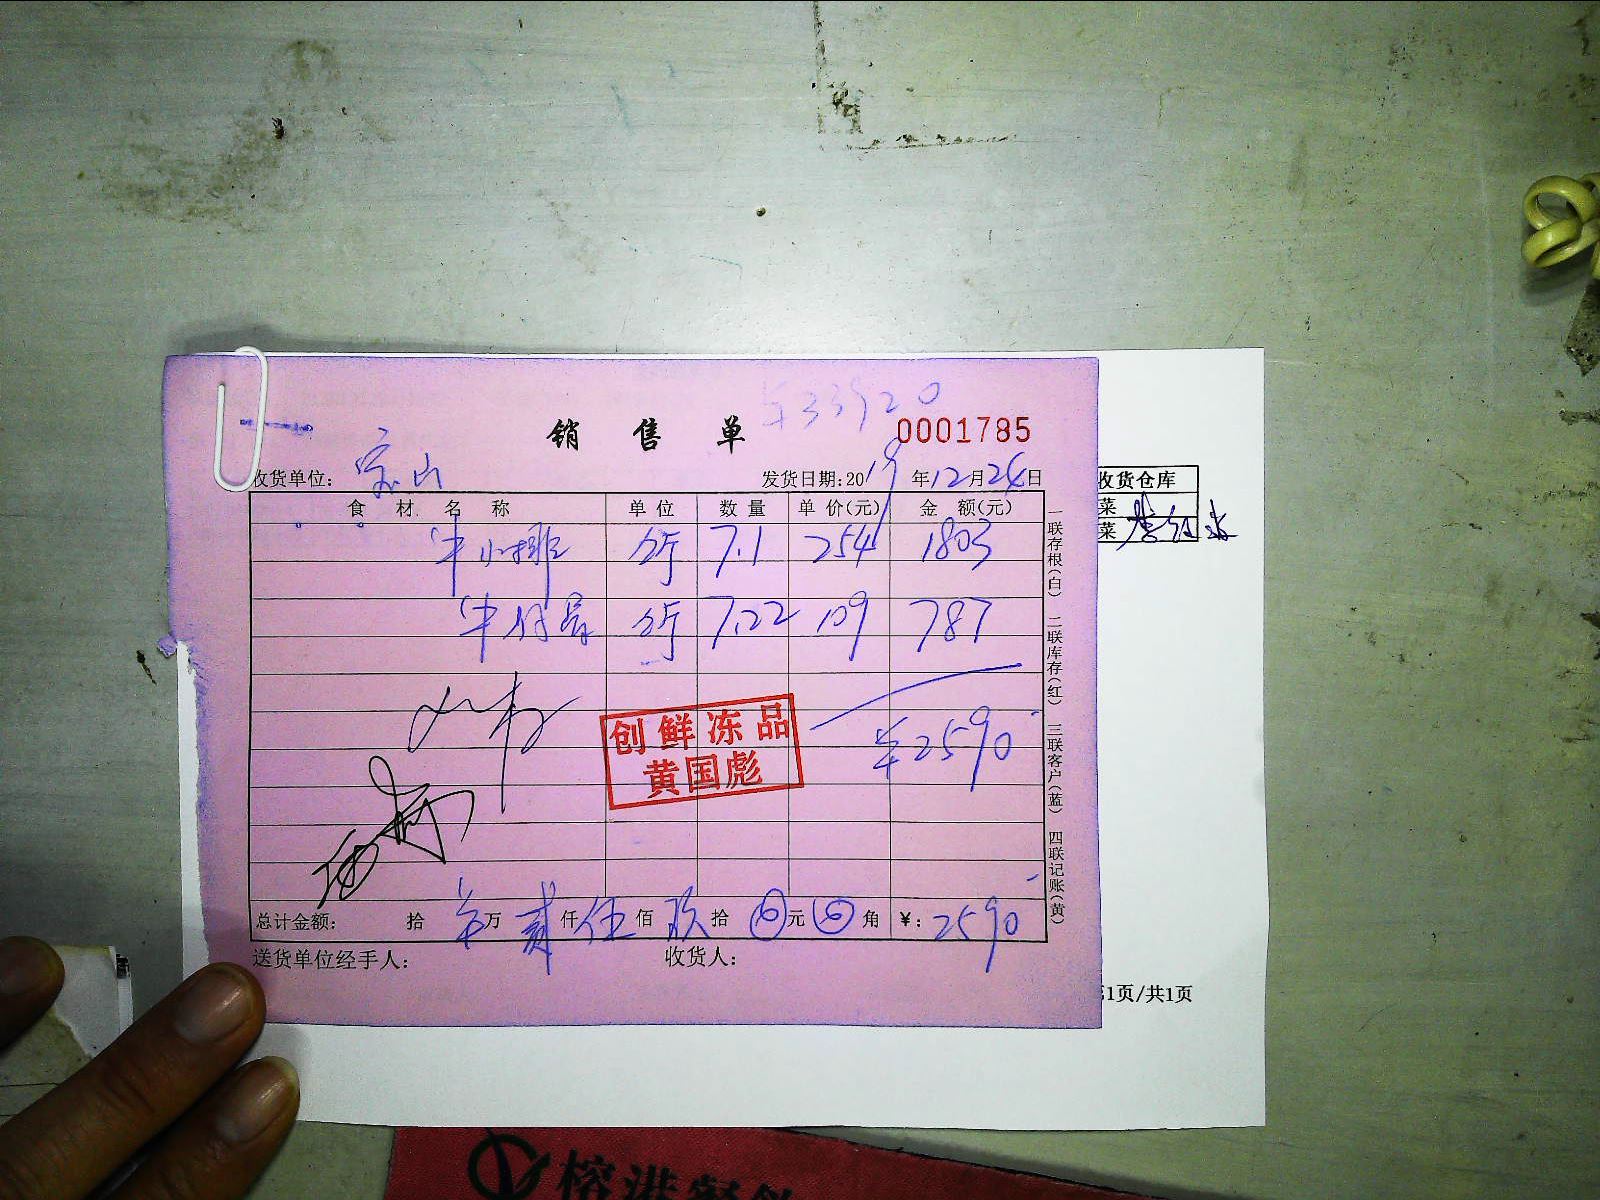 ¥33920
销售单 0001785
收货单位: 宝山 发货日期: 2019年12月24日
收货仓库
食材名称 单位 数量 单价(元) 金额(元)
菜
牛小排 公斤 7.1 254 1803
菜
牛仔骨 公斤 7.22 109 787
创鲜冻品
黄国彪
¥2590
总计金额: 拾 万 贰仟伍佰玖拾 元 角 ¥: 2590
送货单位经手人: 收货人:
一联存根(白) 二联库存(红) 三联客户(蓝) 四联记账(黄)
第1页/共1页
榕港